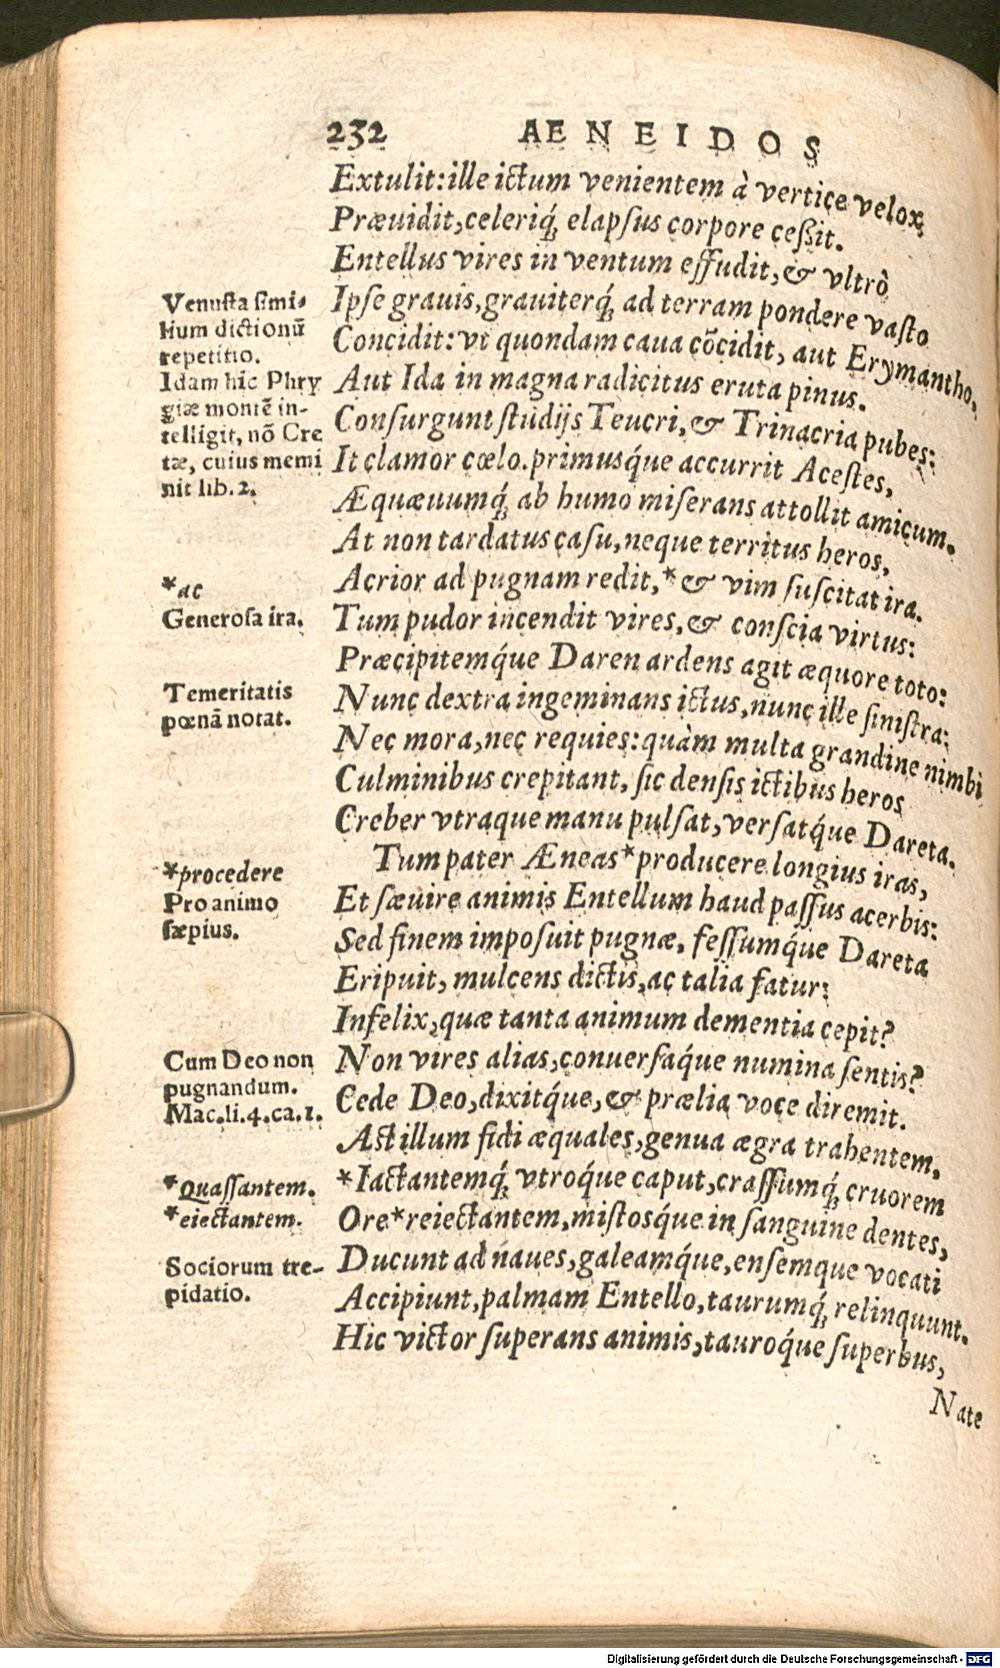 232 AENEIDOS
Extulit: ille ictum venientem à vertice velox
Præuidit, celeriq́; elapsus corpore ceßit.
Entellus vires in ventum effudit, & vltrò
Ipse grauis, grauiterq́; ad terram pondere vasto
Concidit: vt quondam caua cōcidit, aut Erymantho,
Aut Ida in magna radicitus eruta pinus.
Consurgunt studijs Teucri, & Trinacria pubes:
It clamor cœlo. primusq́ue accurrit Acestes,
Æquæuumq́; ab humo miserans attollit amicum.
At non tardatus casu, neque territus heros,
Acrior ad pugnam redit, * & vim suscitat ira.
Tum pudor incendit vires, & conscia virtus:
Præcipitemq́ue Daren ardens agit æquore toto:
Nunc dextra ingeminans ictus, nunc ille sinistra:
Nec mora, nec requies: quàm multa grandine nimbi
Culminibus crepitant, sic densis ictibus heros
Creber vtraque manu pulsat, versatq́ue Dareta.
Tum pater Æneas *producere longius iras,
Et sæuire animis Entellum haud passus acerbis:
Sed finem imposuit pugnæ, fessumq́ue Dareta
Eripuit, mulcens dictis, ac talia fatur:
Infelix, quæ tanta animum dementia cepit?
Non vires alias, conuersaq́ue numina sentis?
Cede Deo, dixitq́ue, & prælia voce diremit.
Ast illum fidi æquales, genua ægra trahentem,
*Iactantemq́; vtroq́ue caput, crassumq́; cruorem
Ore *reiectantem, mistosq́ue in sanguine dentes,
Ducunt ad naues, galeamq́ue, ensemque vocati
Accipiunt, palmam Entello, taurumq́; relinquunt.
Hic victor superans animis, tauroq́ue superbus,
Nate
Venusta simi-
lium dictionū
repetitio.
Idam hic Phry
giæ montē in-
telligit, nō Cre
tæ, cuius memi
nit lib. 2.
*ac
Generosa ira.
Temeritatis
pœnā notat.
*procedere
Pro animo
sæpius.
Cum Deo non
pugnandum.
Mac. li. 4. ca. 1.
*Quassantem.
*eiectantem.
Sociorum tre-
pidatio.
Digitalisierung gefördert durch die Deutsche Forschungsgemeinschaft - DFG